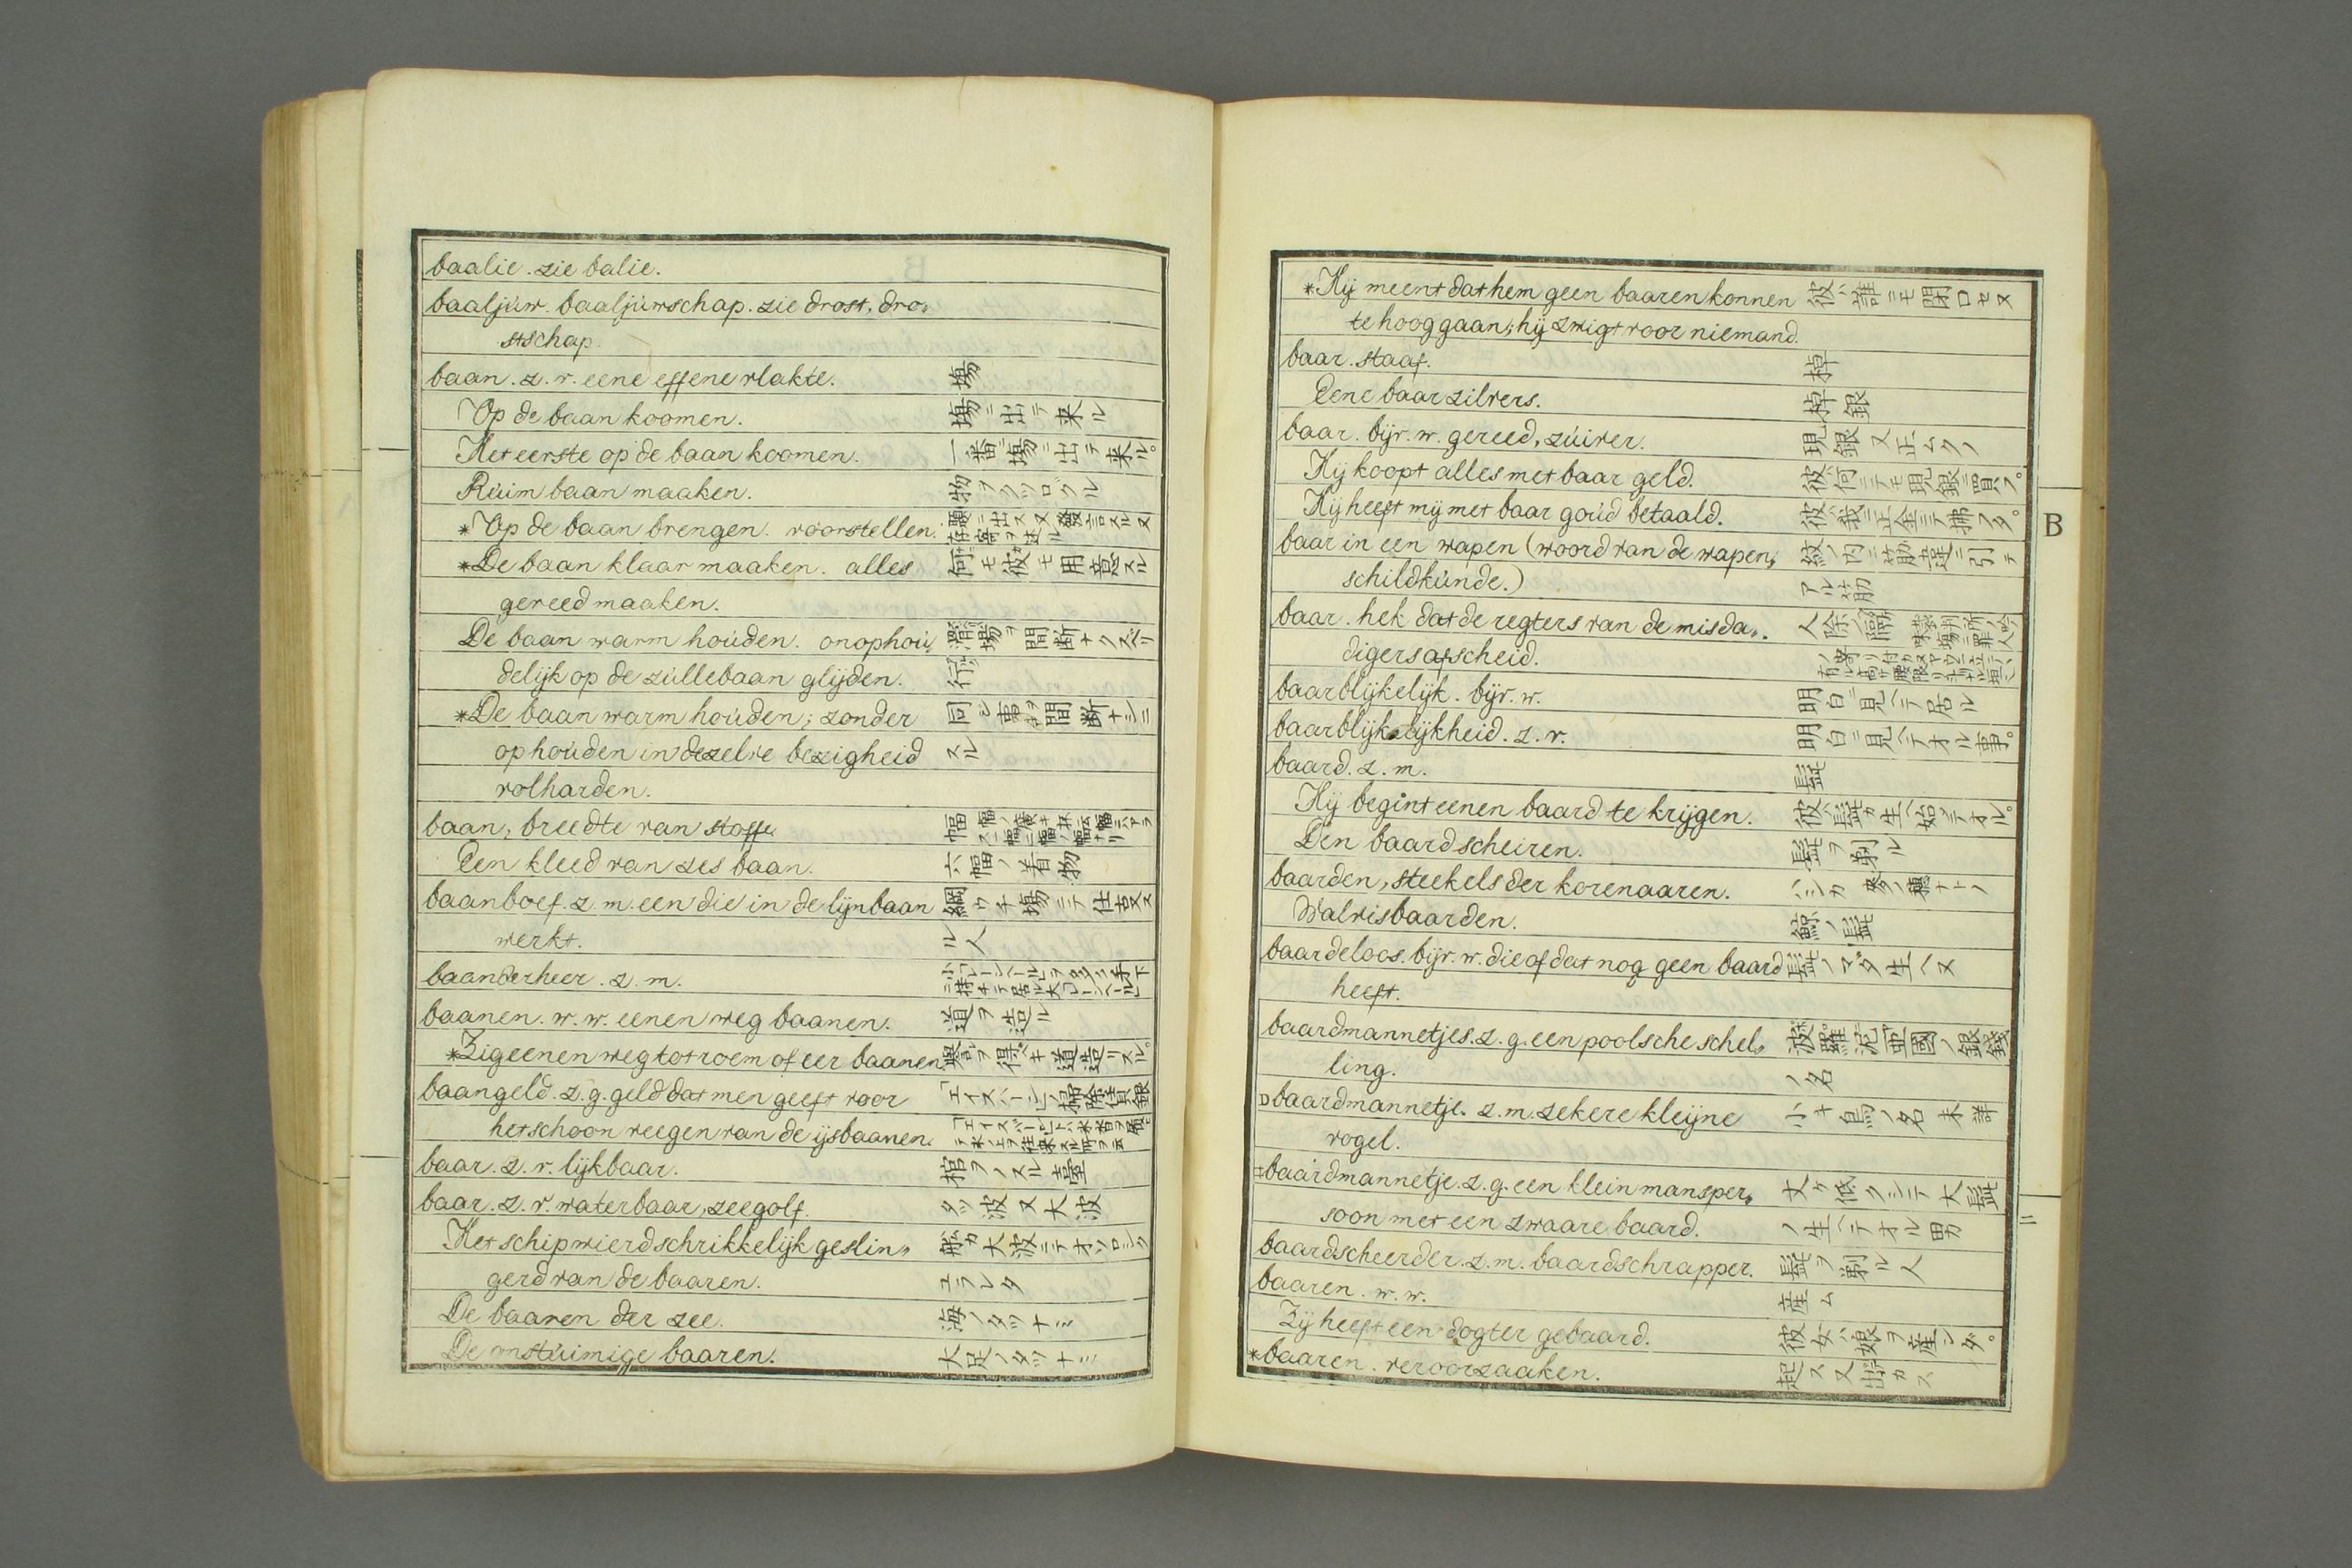 baalie. zie balie.
baaljùw. baaljùwschap. zie drost, dro„
stschap.
baan. z. v. eene effene vlakte. 塲
Op de baan koomen. 塲ニ出テ来ル
Het eerste op de baan koomen. 一番ニ塲ニ出テ来ル。
Rùim baan maaken. 物ヲクツログル
*Op de baan brengen. voorstellen.
*De baan klaar maaken. alles 何モ彼モ用意スル
gereed maaken.
De baan warm hoùden. onophoù„
delijk op de sùllebaan glijden.
*De baan warm hoùden; zonder 同じ事ヲ間断ナシニ
ophoùden in dezelve bezigheid スル
volharden.
baan, breedte van stoffe.
Een kleed van zes baan. 六幅ノ着物
baanboef. z. m. een die in de lijnbaan 綱ウチ塲ニテ仕事ス
werkt. ル人
baanderheer. z. m.
baanen. w. w. eenen weg baanen. 道ヲ造ル
*Zig eenen weg tot roem of eer baanen. 譽ヲ得ベキ道造リスル。
baangeld. z. g. geld dat men geeft voor 「エイスバーン」ノ掃除賃銀
het schoon veegen van de ijsbaanen.
baar. z. v. lijkbaar. 棺ヲノスル臺
baar. z. v. waterbaar, zeegolf. タツ波又大波
Het schip wierd schrikkelijk geslin„ 船カ大波ニテオソロシク
gerd van de baaren. ユラレタ
De baaren der zee. 海ノタツナミ
De onstùimige baaren. 大足ノタツナミ
*Hij meent dat hem geen baaren konnen 彼ハ誰ニモ閉口セヌ
te hoog gaan; hij zwigt voor niemand.
baar. staaf. 棹
Eene baar zilvers. 棹銀
baar. bijv. w. gereed, zùiver. 現銀又正ムクノ
Hij koopt alles met baar geld. 彼ハ何ニテモ現銀ニ買フ。
Hij heeft mij met baar goùd betaald. 彼ハ我ニ正金ニテ拂フタ。
baar in een wapen (woord van de wapen„ 紋ノ内ニ筋違ニ引テ
schildkùnde.) アル筋
baar. hek dat de regters van de misda„
digers afscheid.
baarblijkelijk. bijv. w. 明白ニ見ヘテ居ル
baarblijkelijkheid. z. v. 明白ニ見ヘテオル事。
baard. z. m. 髭
Hij begint eenen baard te krijgen. 彼ハ髭カ生ヘ始テオル。
Den baard scheiren. 髭ヲ剃ル
baarden, steekels der korenaaren. ハシカ 麥ノ穗ナトノ
Walvisbaarden. 鯨ノ髭
baardeloos. bijv. w. die of dat nog geen baard 髭ノマダ生ヘヌ
heeft.
baardmannetjes. z. g. een poolsche schel„ 波羅泥亜國ノ銀錢
ling. ノ名
baardmannetje. z. m. zekere kleijne 小キ鳥ノ名未詳
vogel.
baardmannetje. z. g. een klein mansper„ 丈ケ低クシテ大髭
soon met een zwaare baard. ノ生ヘテオル男
baardscheerder. z. m. baardschrapper. 髭ヲ剃ル人
baaren. w. w. 産ム
Zij heeft een dogter gebaard. 彼女ハ娘ヲ産ンダ。
*baaren. veroorzaaken. 起ス又出カス
B